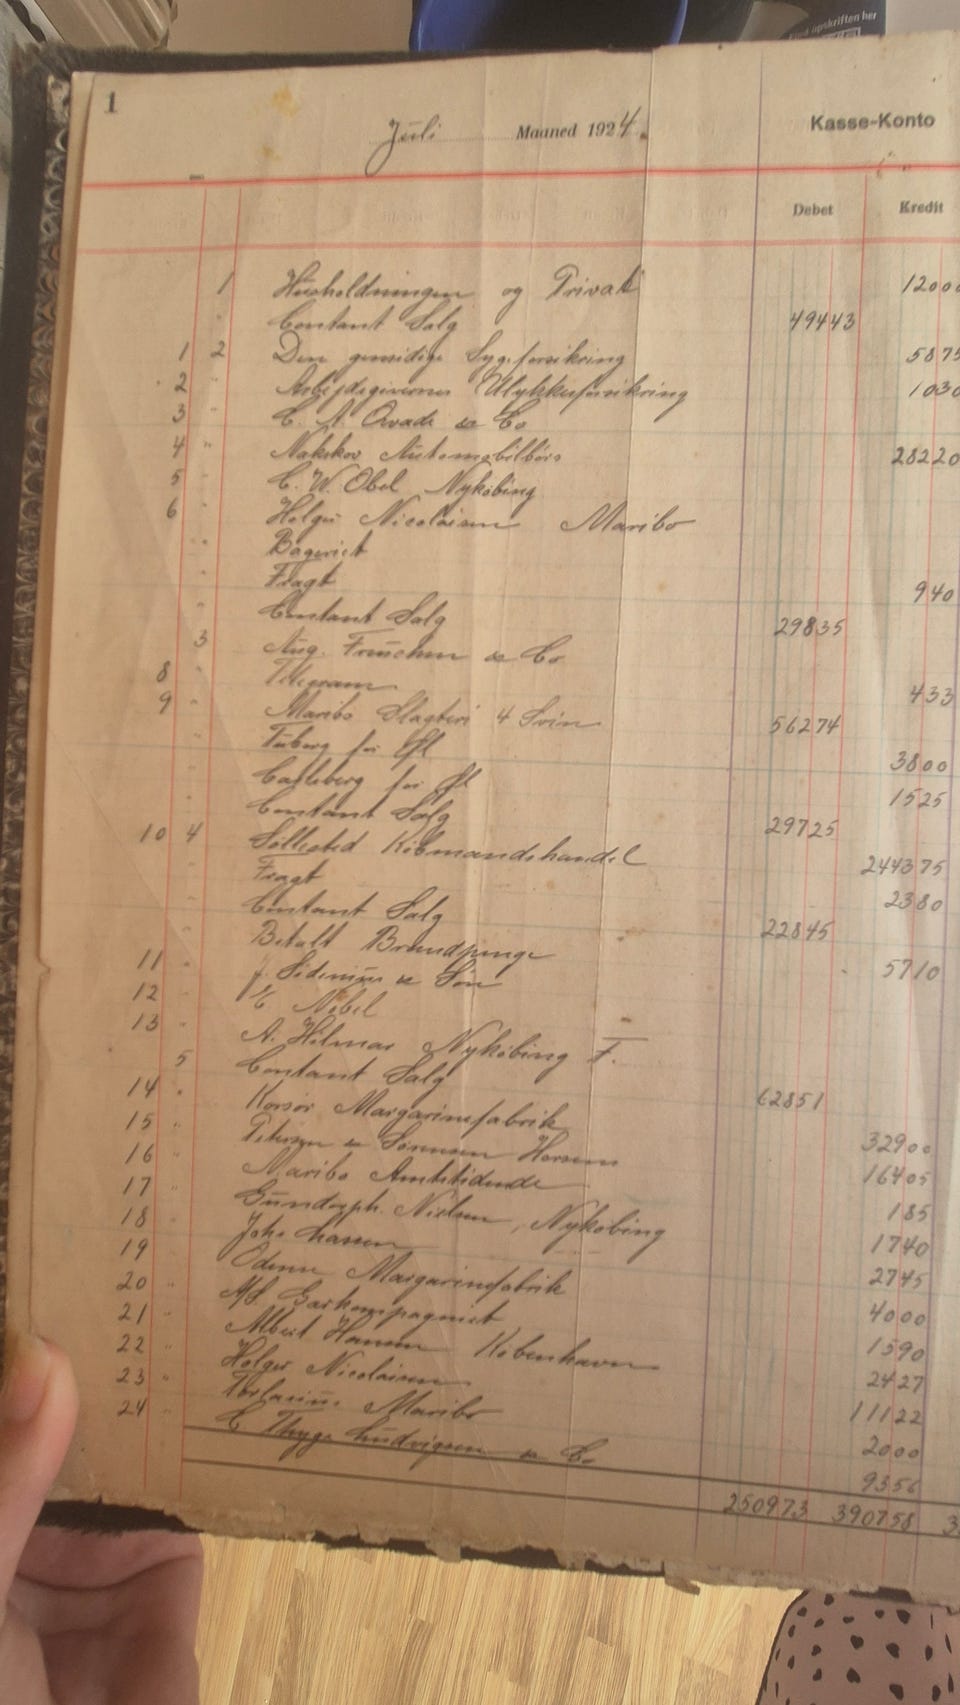 opskriften her
1 Juli Maaned 1924. Kasse-Konto
Debet Kredit
1 Husholdningen og Privat 12000
" Contant Salg 49443
1 2 Den gensidige Sygeforsikring 5875
2 " Arbejdsgivernes Ulykkesforsikring 1030
3 C. A. Qvade & Co
4 " Nakskov Automobilbörs 28220
5 C. W. Obel Nykøbing
6 Holger Nicolaisen Maribo
" Bageriet
" Fragt 940
" Contant Salg 29835
3 Aug. Freuchen & Co
8 " Telegram 433
9 " Maribo Slagteri 4 Svin 56274
" Tuborg for Øl 3800
" Carlsberg for Øl 1525
" Contant Salg 29725
10 4 Søllested Købmandshandel 244375
Fragt 2380
" Contant Salg 22845
" Betalt Brandpenge 5710
11 " J. Sidenius & Søn
12 " E Nobel
13 " A. Hilmar Nykøbing F.
5 Contant Salg 62851
14 " Korsør Margarinefabrik 32900
15 " Petersen & Sørensen Horsens 16405
16 " Maribo Amtstidende 185
17 " Gundorph. Nielsen, Nykøbing 1740
18 " Johs Hansen 2745
19 " Odense Margarinefabrik 4000
20 " A/S Gaskompagniet 1590
21 " Albert Hansen København 2427
22 " Holger Nicolaisen 11122
23 " Maribo 2000
24 " C Thyge Ludvigsen & Co. 9356
250973 390758 3